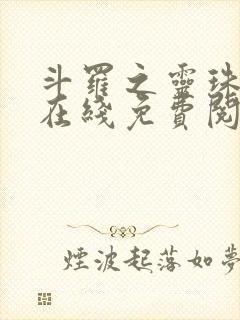 斗羅之靈珠
在綫免費閱
煙波起落如夢